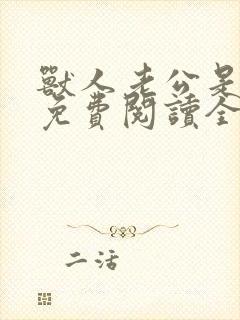 獸人老公是
免費閱讀全
二活